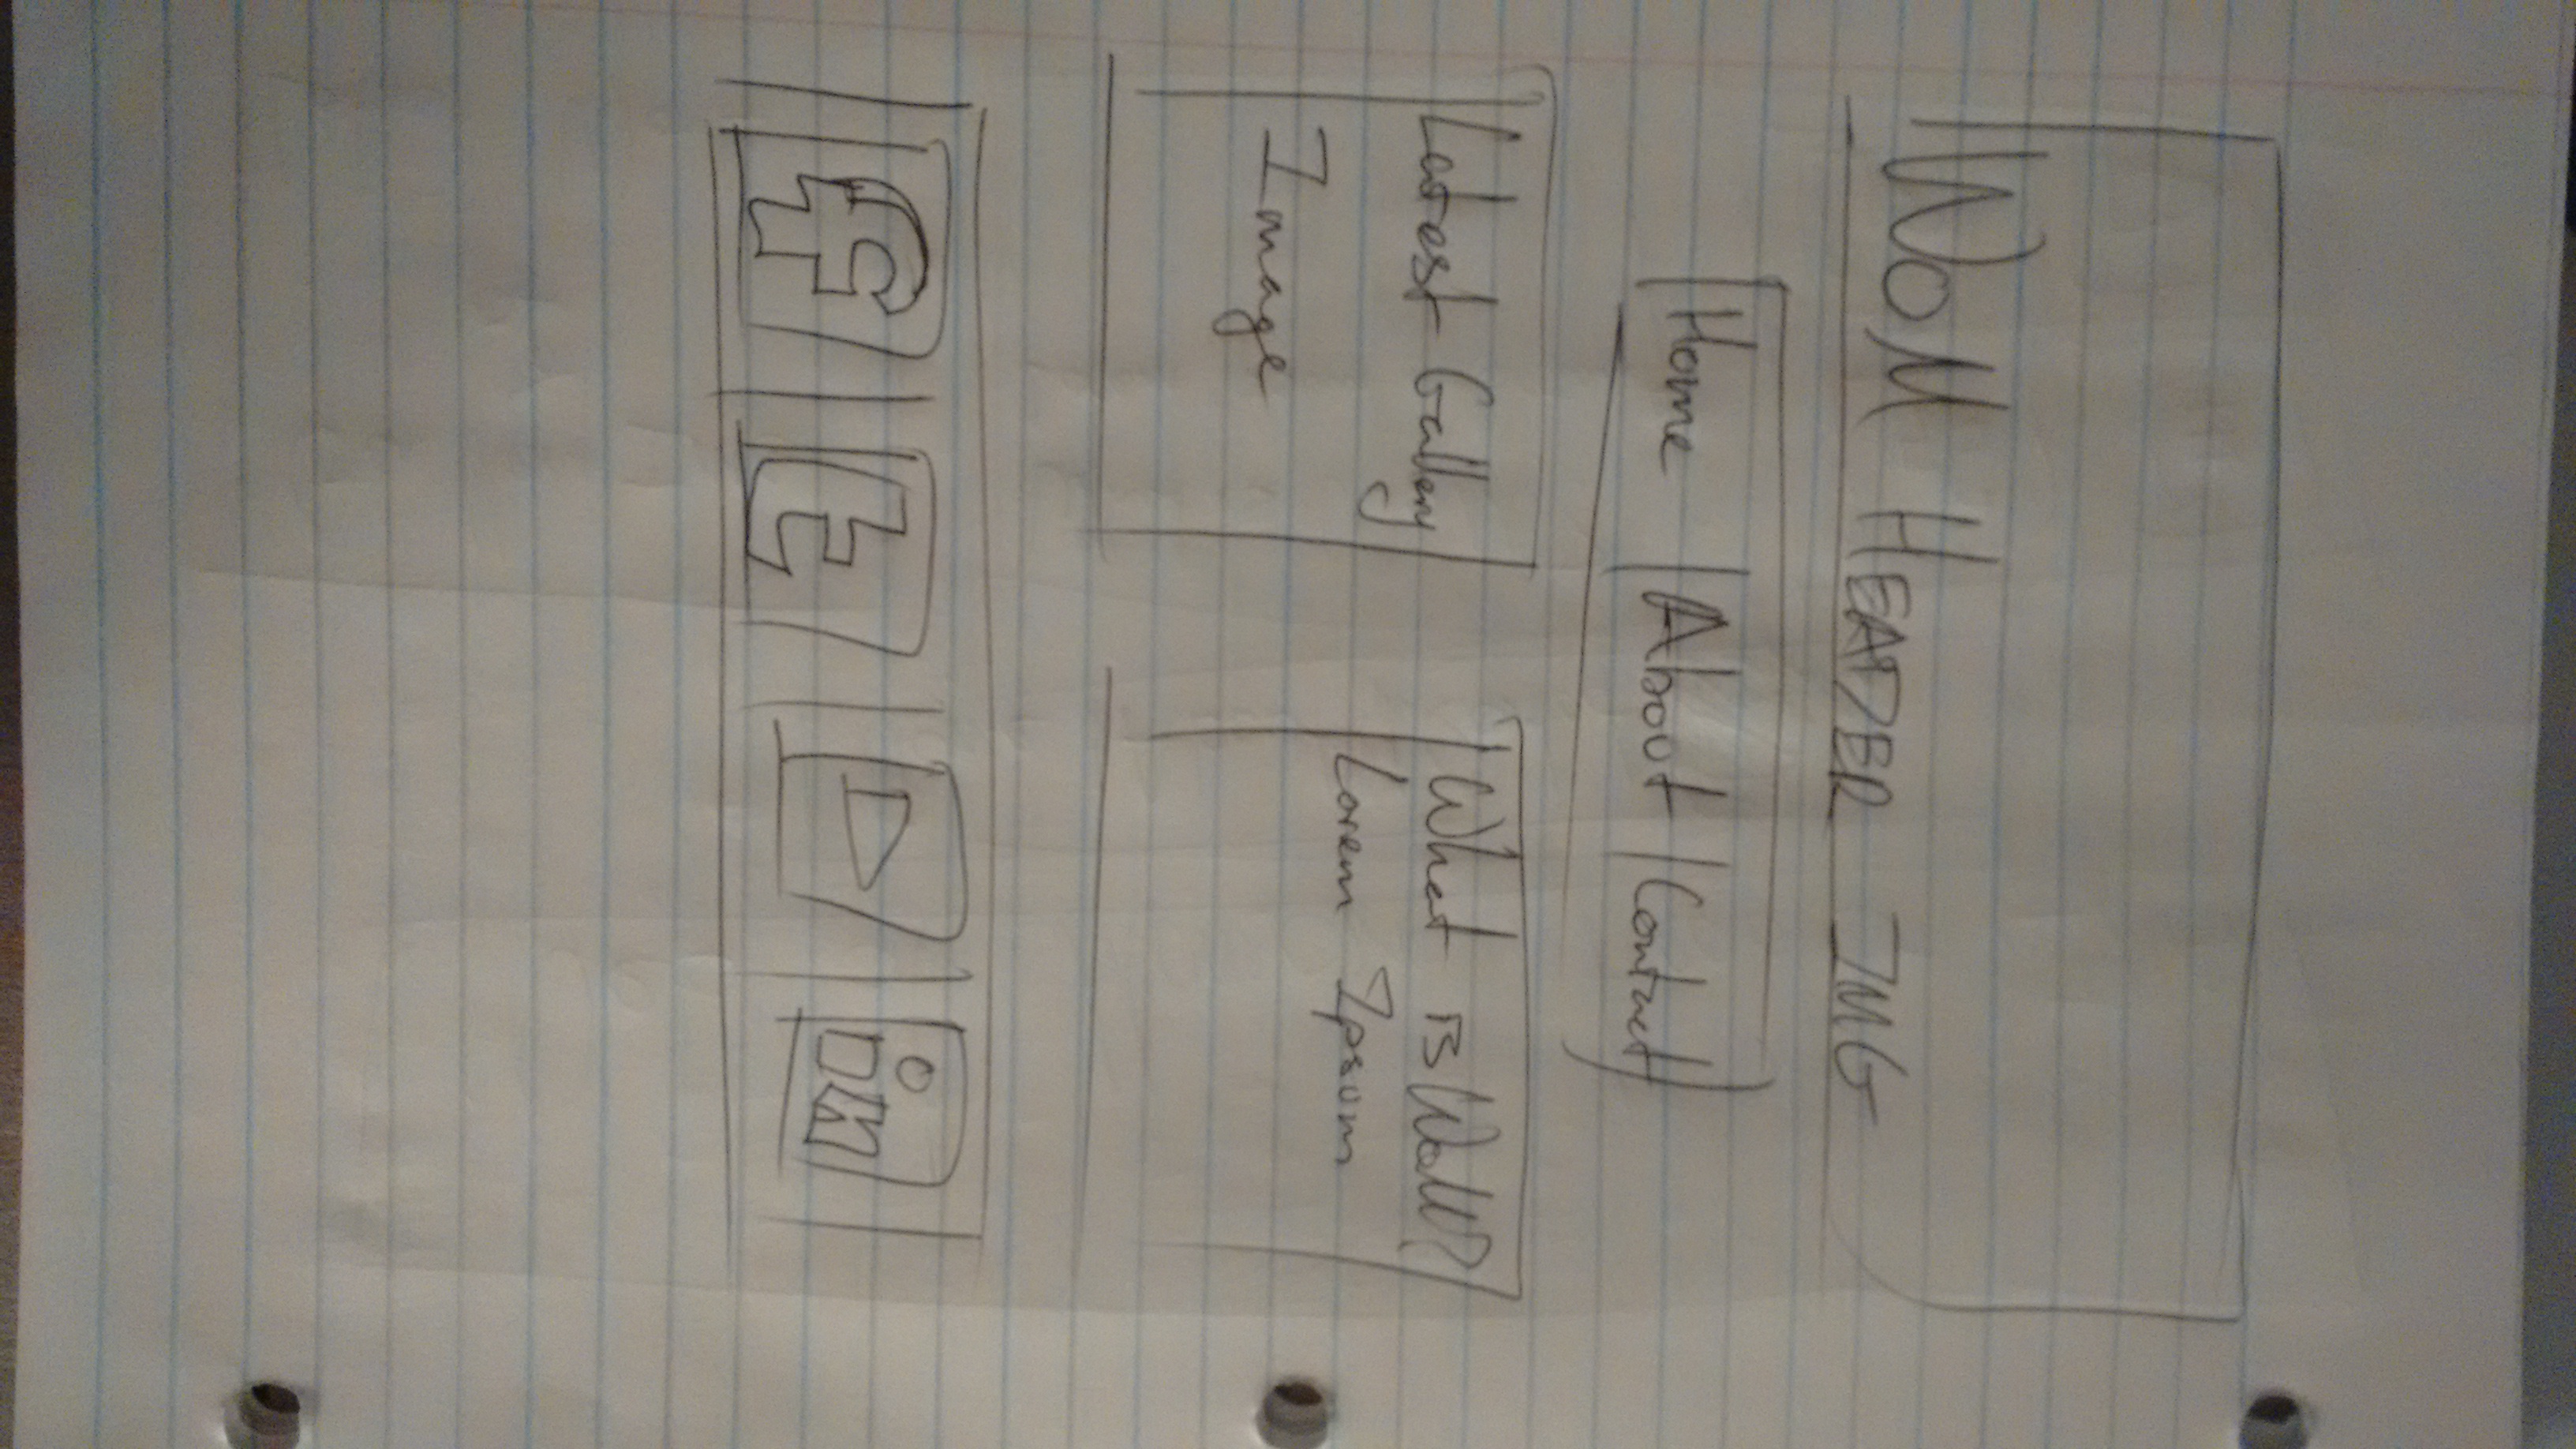 WoM HEADER IMG
Home About Contact
Latest Gallery
Image
What is WoM?
Lorem Ipsum
f t in